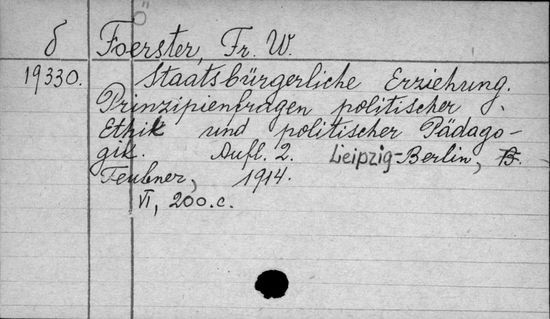 б Foerster, Fr. W.
19330. Staatsbürgerliche Erziehung.
Prinzipienfragen politischer
Ethik und politischer Pädago-
gik. Aufl. 2. Leipzig-Berlin, B.
Teubner, 1914.
VI, 200.c.